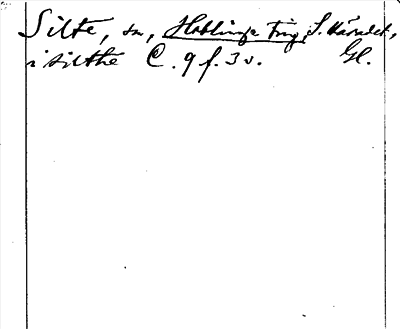 Silte, sn, Hablinge ting, S. Häradet,
i silthe C. 9 f. 3 v. Gl.